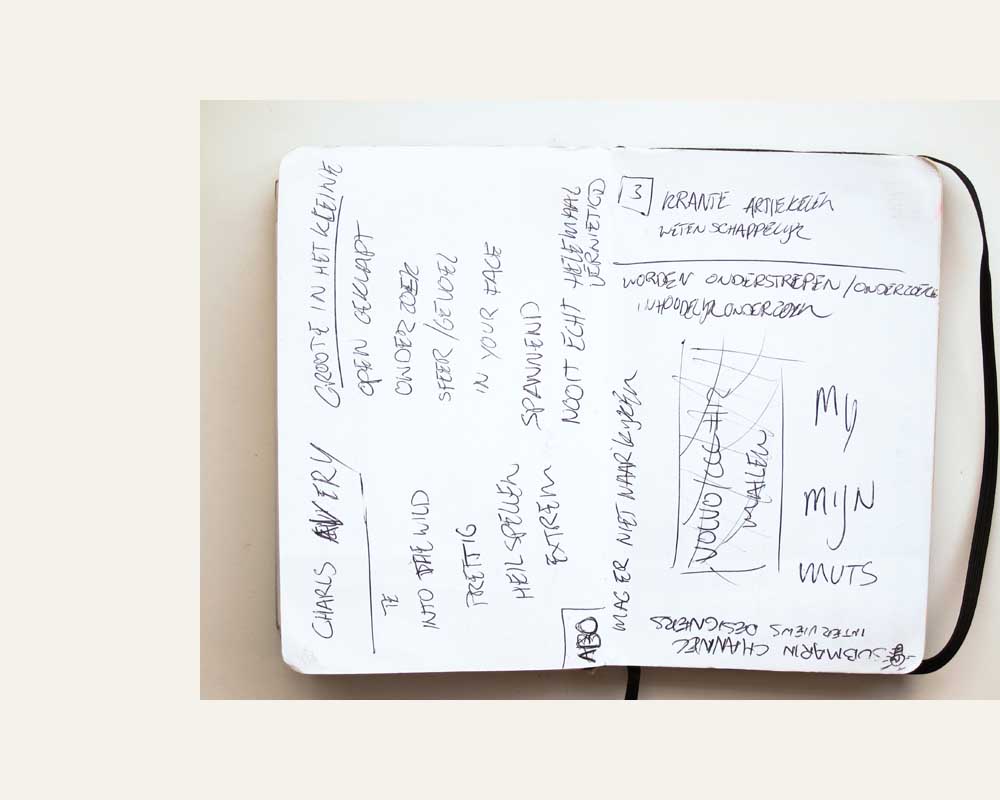 CHARLS AVERY
TE
INTO THE WILD
PRETTIG
HEILSPELLEN
EXTREEM
ABO
GROOTE IN HET KLEINE
OPEN GEKLAPT
ONDERZOEK
SFEER/GEVOEL
IN YOUR FACE
SPANNEND
NOOIT ECHT HELEMAAL
VERNIETIGD
MAG ER NIET NAAR KIJKEN
3 KRANTE ARTIEKELEN
WETENSCHAPPELIJK
WORDEN ONDERSTREPEN/
ONDERZOEK
MAILEN
MY
MIJN
MUTS
SUBMARIN CHANNEL
INTERVIEWS DESIGNERS